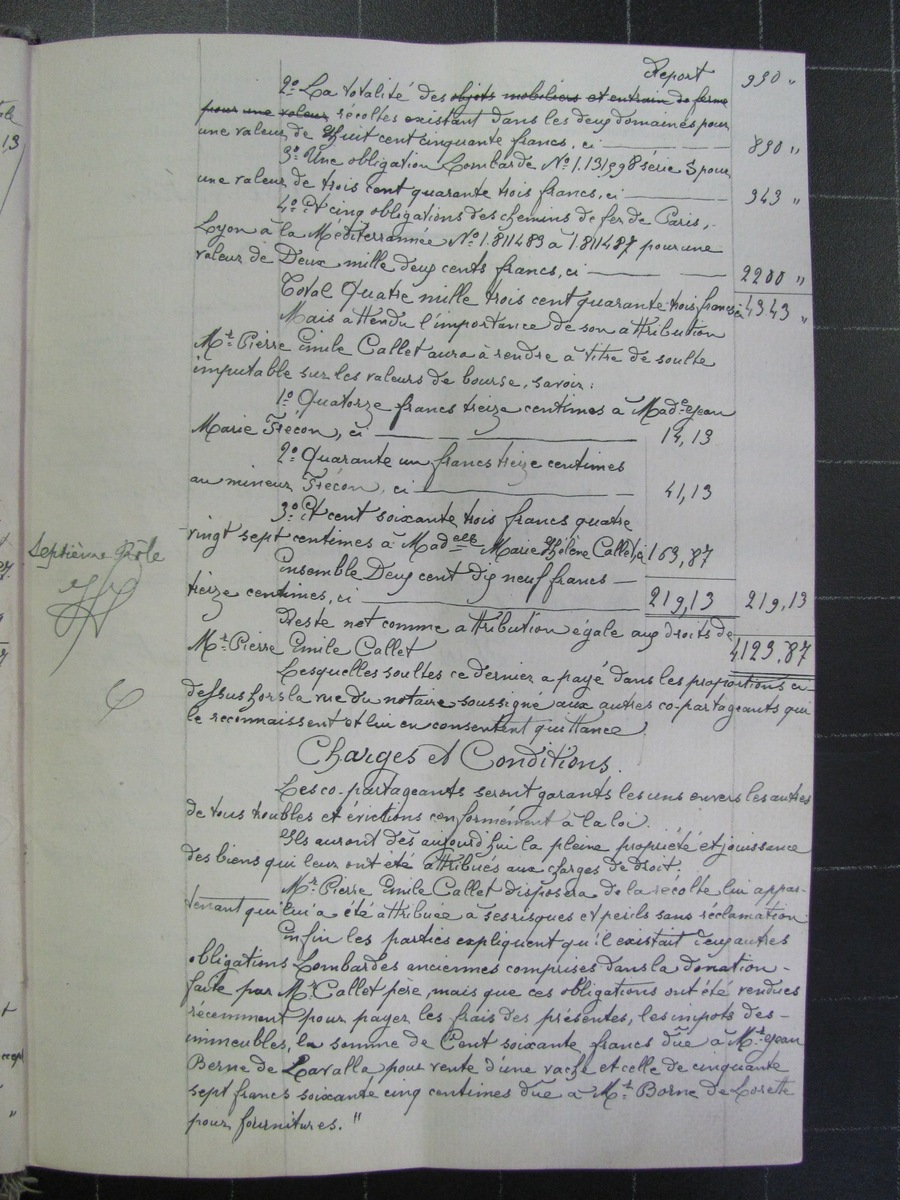 Report 950 "
2o La totalité des objets mobiliers et entrain de ferme
pour une valeur récoltes existant dans les deux domaines pour
une valeur de Huit cent cinquante francs, ci 850 "
3o Une obligation Lombarde No 1.131998 série S pour
une valeur de trois cent quarante trois francs, ci 343 "
4o Et cinq obligations des chemins de fer de Paris,
Lyon à la Méditerrannée No 1.811483 à 1.811487 pour une
valeur de Deux mille deux cents francs, ci 2200 "
Total Quatre mille trois cent quarante trois francs ci 4343 "
Mais attendu l'importance de son attribution
Mr Pierre Emile Callet aura à rendre à titre de soulte
imputable sur les valeurs de bourse, savoir :
1o Quatorze francs treize centimes à Made Jean
Marie Frécon, ci 14,13
2o Quarante un francs treize centimes
au mineur Frécon, ci 41,13
3o Et cent soixante trois francs quatre
vingt sept centimes à Madelle Marie Hélène Callet, ci 163,87
Ensemble Deux cent dix neuf francs
treize centimes, ci 219,13 219,13
Reste net comme attribution égale aux droits de
Mr Pierre Emile Callet 4123.87
Septième Rôle
Lesquelles soultes ce dernier a payé dans les proportions ci-
dessus hors la vue du notaire soussigné aux autres co-partageants qui
le reconnaissent et lui en consentent quittance.
Charges et Conditions.
Les co-partageants seront garants les uns envers les autres
de tous troubles et évictions conformément à la loi.
Ils auront dès aujourd'hui la pleine propriété et jouissance
des biens qui leur ont été attribués aux charges de droit.
Mr Pierre Emile Callet disposera de la récolte lui appar-
tenant qui lui a été attribuée à ses risques et perils sans réclamation
Enfin les parties expliquent qu'il existait deux autres
obligations Lombardes anciennes comprises dans la donation
faite par Mr Callet père, mais que ces obligations ont été vendues
récemment pour payer les frais des présentes, les impots des
immeubles, la somme de Cent soixante francs dûe à Mr Jean
Berne de Lavalla pour vente d'une vache et celle de cinquante
sept francs soixante cinq centimes dûe à Mr Borne de Lorette
pour fournitures. "